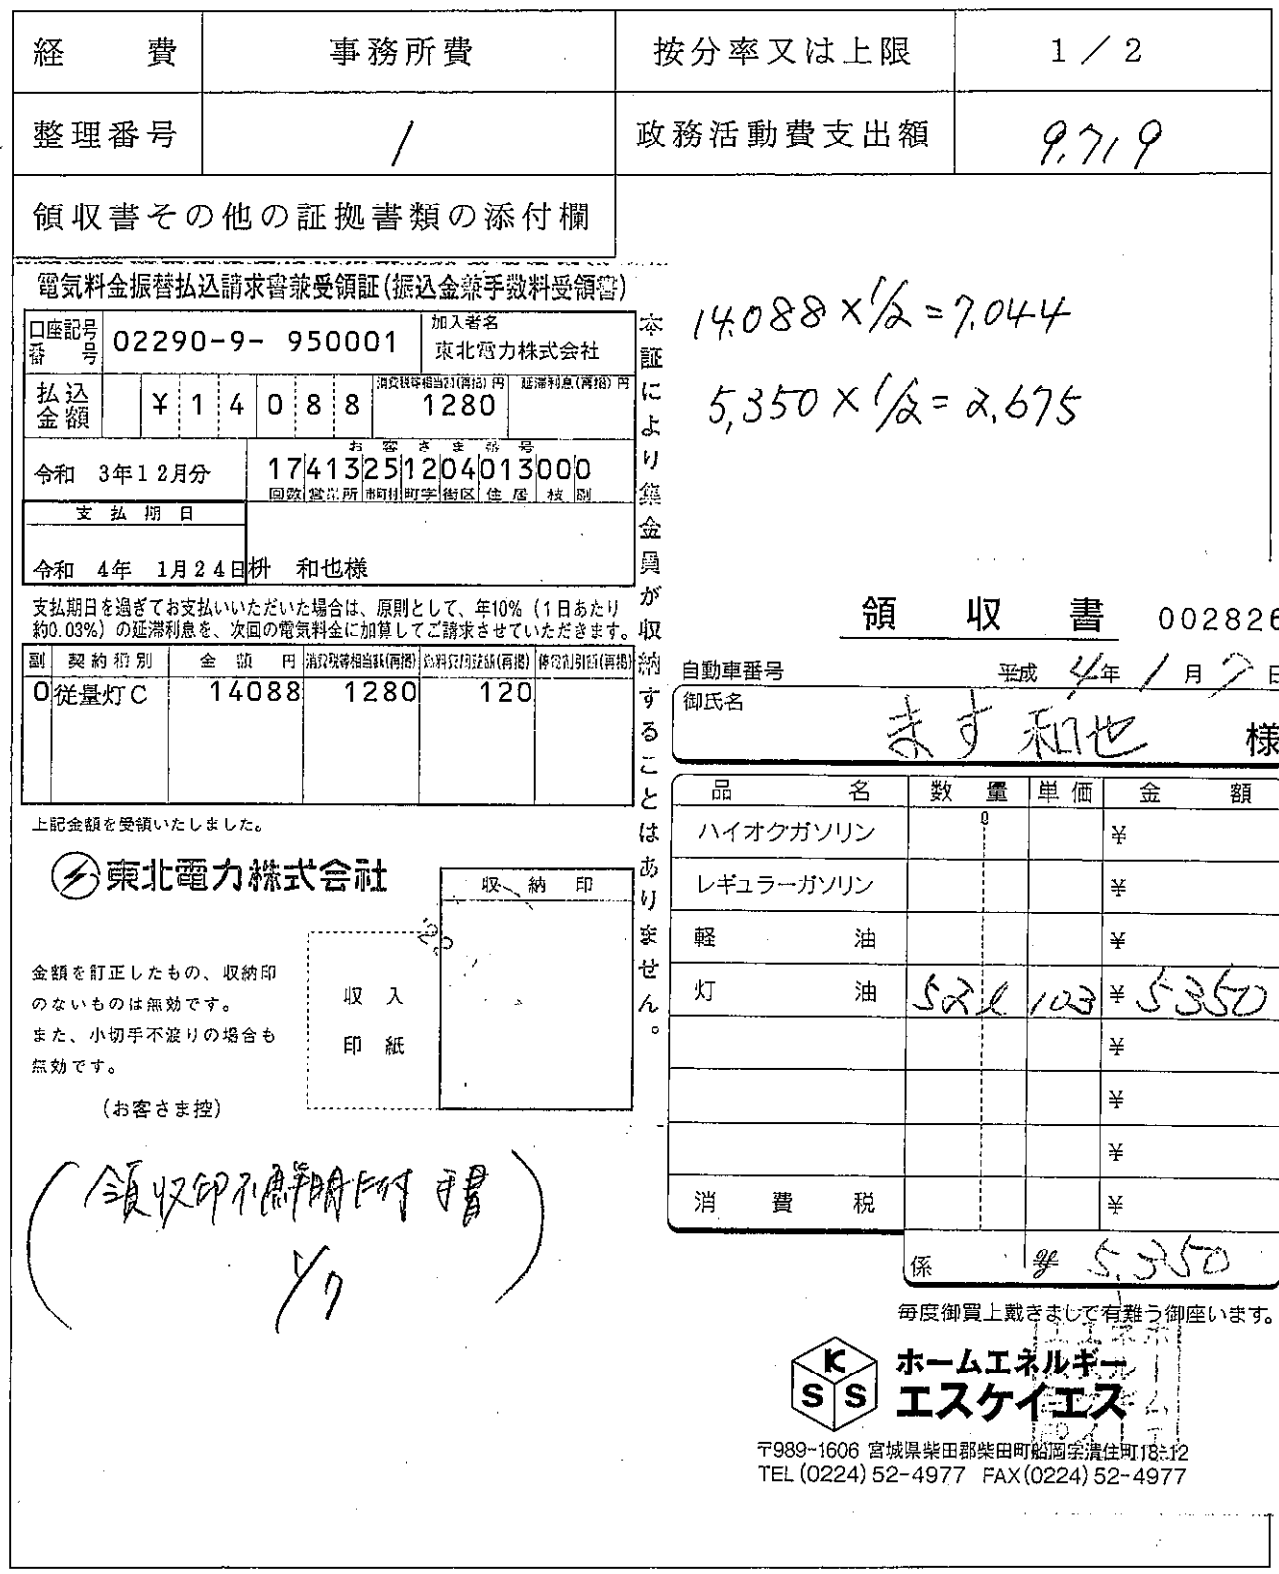 経費 事務所費 按分率又は上限 1／2
整理番号 1 政務活動費支出額 9,719
領収書その他の証拠書類の添付欄
電気料金振替払込請求書兼受領証(振込金兼手数料受領書)
口座記号番号 02290-9- 950001 加入者名 東北電力株式会社
払込金額 ¥14088 消費税等相当額(再掲) 円 1280 延滞利息(再掲) 円
お客さま番号
令和 3年12月分 17413251204013000
回数 営業所 市町村 町字 街区 住居 枝 副
支払期日
令和 4年 1月24日 枡 和也様
支払期日を過ぎてお支払いいただいた場合は、原則として、年10%（1日あたり
約0.03%）の延滞利息を、次回の電気料金に加算してご請求させていただきます。
副 契約種別 金額 円 消費税等相当額(再掲) 燃料費調整額(再掲) 停電割引額(再掲)
0 従量灯C 14088 1280 120
上記金額を受領いたしました。
東北電力株式会社
収納印
金額を訂正したもの、収納印
のないものは無効です。
また、小切手不渡りの場合も
無効です。
(お客さま控)
収入
印紙
本証により集金員が収納することはありません。
(領収印不鮮明に付 手書
1/7)
14,088×1/2=7,044
5,350×1/2=2,675
領収書 002826
自動車番号 平成 4年 1月 7日
御氏名 ます 和也 様
品名 数量 単価 金額
ℓ
ハイオクガソリン ¥
レギュラーガソリン ¥
軽油 ¥
灯油 52ℓ 103 ¥ 5350
¥
¥
¥
消費税 ¥
係 ¥ 5,350
毎度御買上戴きまして有難う御座います。
KSS
ホームエネルギー
エスケイエス
〒989-1606 宮城県柴田郡柴田町船岡字清住町18-12
TEL(0224)52-4977 FAX(0224)52-4977